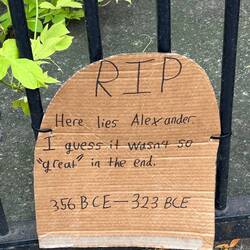 RIP
Here lies Alexander.
I guess it wasn't so
"great" in the end.
356 BCE—323 BCE